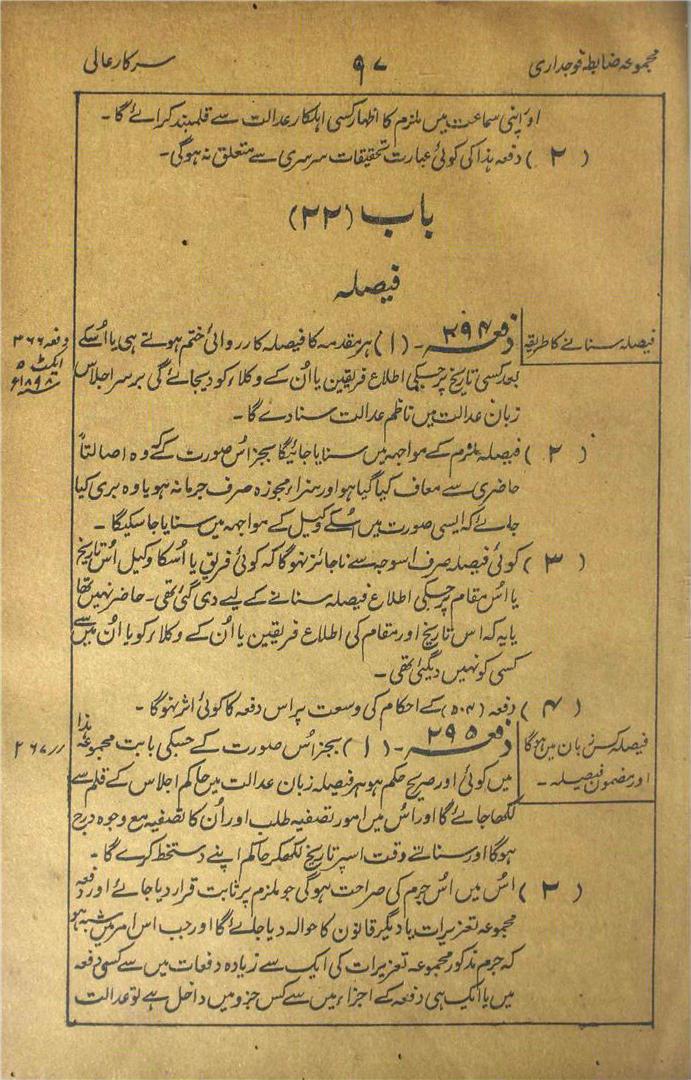 مجموعہ ضابطہ فوجداری ۹۷ سرکار عالی
اور اپنی سماعت میں ملزم کا اظہار کسی اہلکار عدالت سے قلمبند کرائے گا۔
( ۲ ) دفعہ ہذا کی کوئی عبارت تحقیقات سرسری سے متعلق نہ ہوگی۔
باب (۲۲)
فیصلہ
فیصلہ سنانے کا طریقہ
دفعہ ۲۹۴۔ (۱) ہر مقدمہ کا فیصلہ کارروائی ختم ہوتے ہی یا اُسکے
دفعہ ۳۶۶
ایکٹ ۵
سنہ ۱۸۹۸ء
بعد کسی تاریخ پر جسکی اطلاع فریقین یا اُن کے وکلاء کو دیجائے گی برسر اجلاس
زبان عدالت میں ناظم عدالت سنا دے گا۔
( ۲ ) فیصلہ ملزم کے مواجہہ میں سنایا جائیگا بجز اُس صورت کے کہ وہ اصالتاً
حاضری سے معاف کیا گیا ہو اور سزاء مجوزہ صرف جرمانہ ہو یا وہ بری کیا
جائے کہ ایسی صورت میں اُسکے وکیل کے مواجہہ میں سنایا جا سکیگا۔
( ۳ ) کوئی فیصلہ صرف اسوجہ سے ناجائز نہوگا کہ کوئی فریق یا اُسکا وکیل اُس تاریخ
یا اُس مقام پر جسکی اطلاع فیصلہ سنانے کے لیے دی گئی تھی۔ حاضر نہیں تھا
یا یہ کہ اس تاریخ اور مقام کی اطلاع فریقین یا اُن کے وکلاء کو یا اُن میں سے
کسی کو نہیں دیگئی تھی۔
( ۴ ) دفعہ (۵۰۴) کے احکام کی وسعت پر اس دفعہ کا کوئی اثر نہوگا۔
فیصلہ کس زبان میں ہوگا
اور مضمون فیصلہ۔
دفعہ ۲۹۵۔ (۱) بجز اُس صورت کے جسکی بابت مجموعہ ہذا
〃 ۳۶۷
میں کوئی اور صریح حکم ہو ہر فیصلہ زبان عدالت میں حاکم اجلاس کے قلم سے
لکھا جائے گا اور اُس میں امور تصفیہ طلب اور اُن کا تصفیہ مع وجوہ درج
ہوگا اور سناتے وقت اسپر تاریخ لکھکر حاکم اپنے دستخط کرے گا۔
( ۲ ) اُس میں اُس جرم کی صراحت ہوگی جو ملزم پر ثابت قرار دیا جائے اور دفعہ
مجموعہ تعزیرات یا دیگر قانون کا حوالہ دیا جائے گا اور جب اس امر میں شبہ ہو
کہ جرم مذکور مجموعہ تعزیرات کی ایک سے زیادہ دفعات میں سے کس دفعہ
میں یا ایک ہی دفعہ کے اجزاء میں سے کس جزو میں داخل ہے تو عدالت